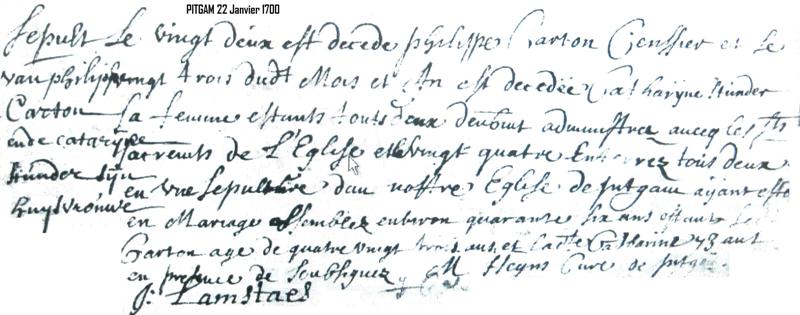 PITGAM 22 Janvier 1700
Sepult Le vingt deux est decede philippe Carton Censsier et Le
van philippe vingt trois dudt Mois et An est decedée Catharijne Stunder
Carton sa femme estants touts deux administrez avecq les sts
ende catarijne sacrements de L'Eglise et le vingt quatre Enterrez tous deux
Stunder sijn en une sepulture dan nostre Eglise de pitgam ayant esté
huysvrouwe en Mariage assemblez environ quarante six ans estant Le
Carton age de quatre vingt trois ans et Catharine 73 ans
en presence de soubsignez M fleyns Curé de pitgam
J. Lamstaes